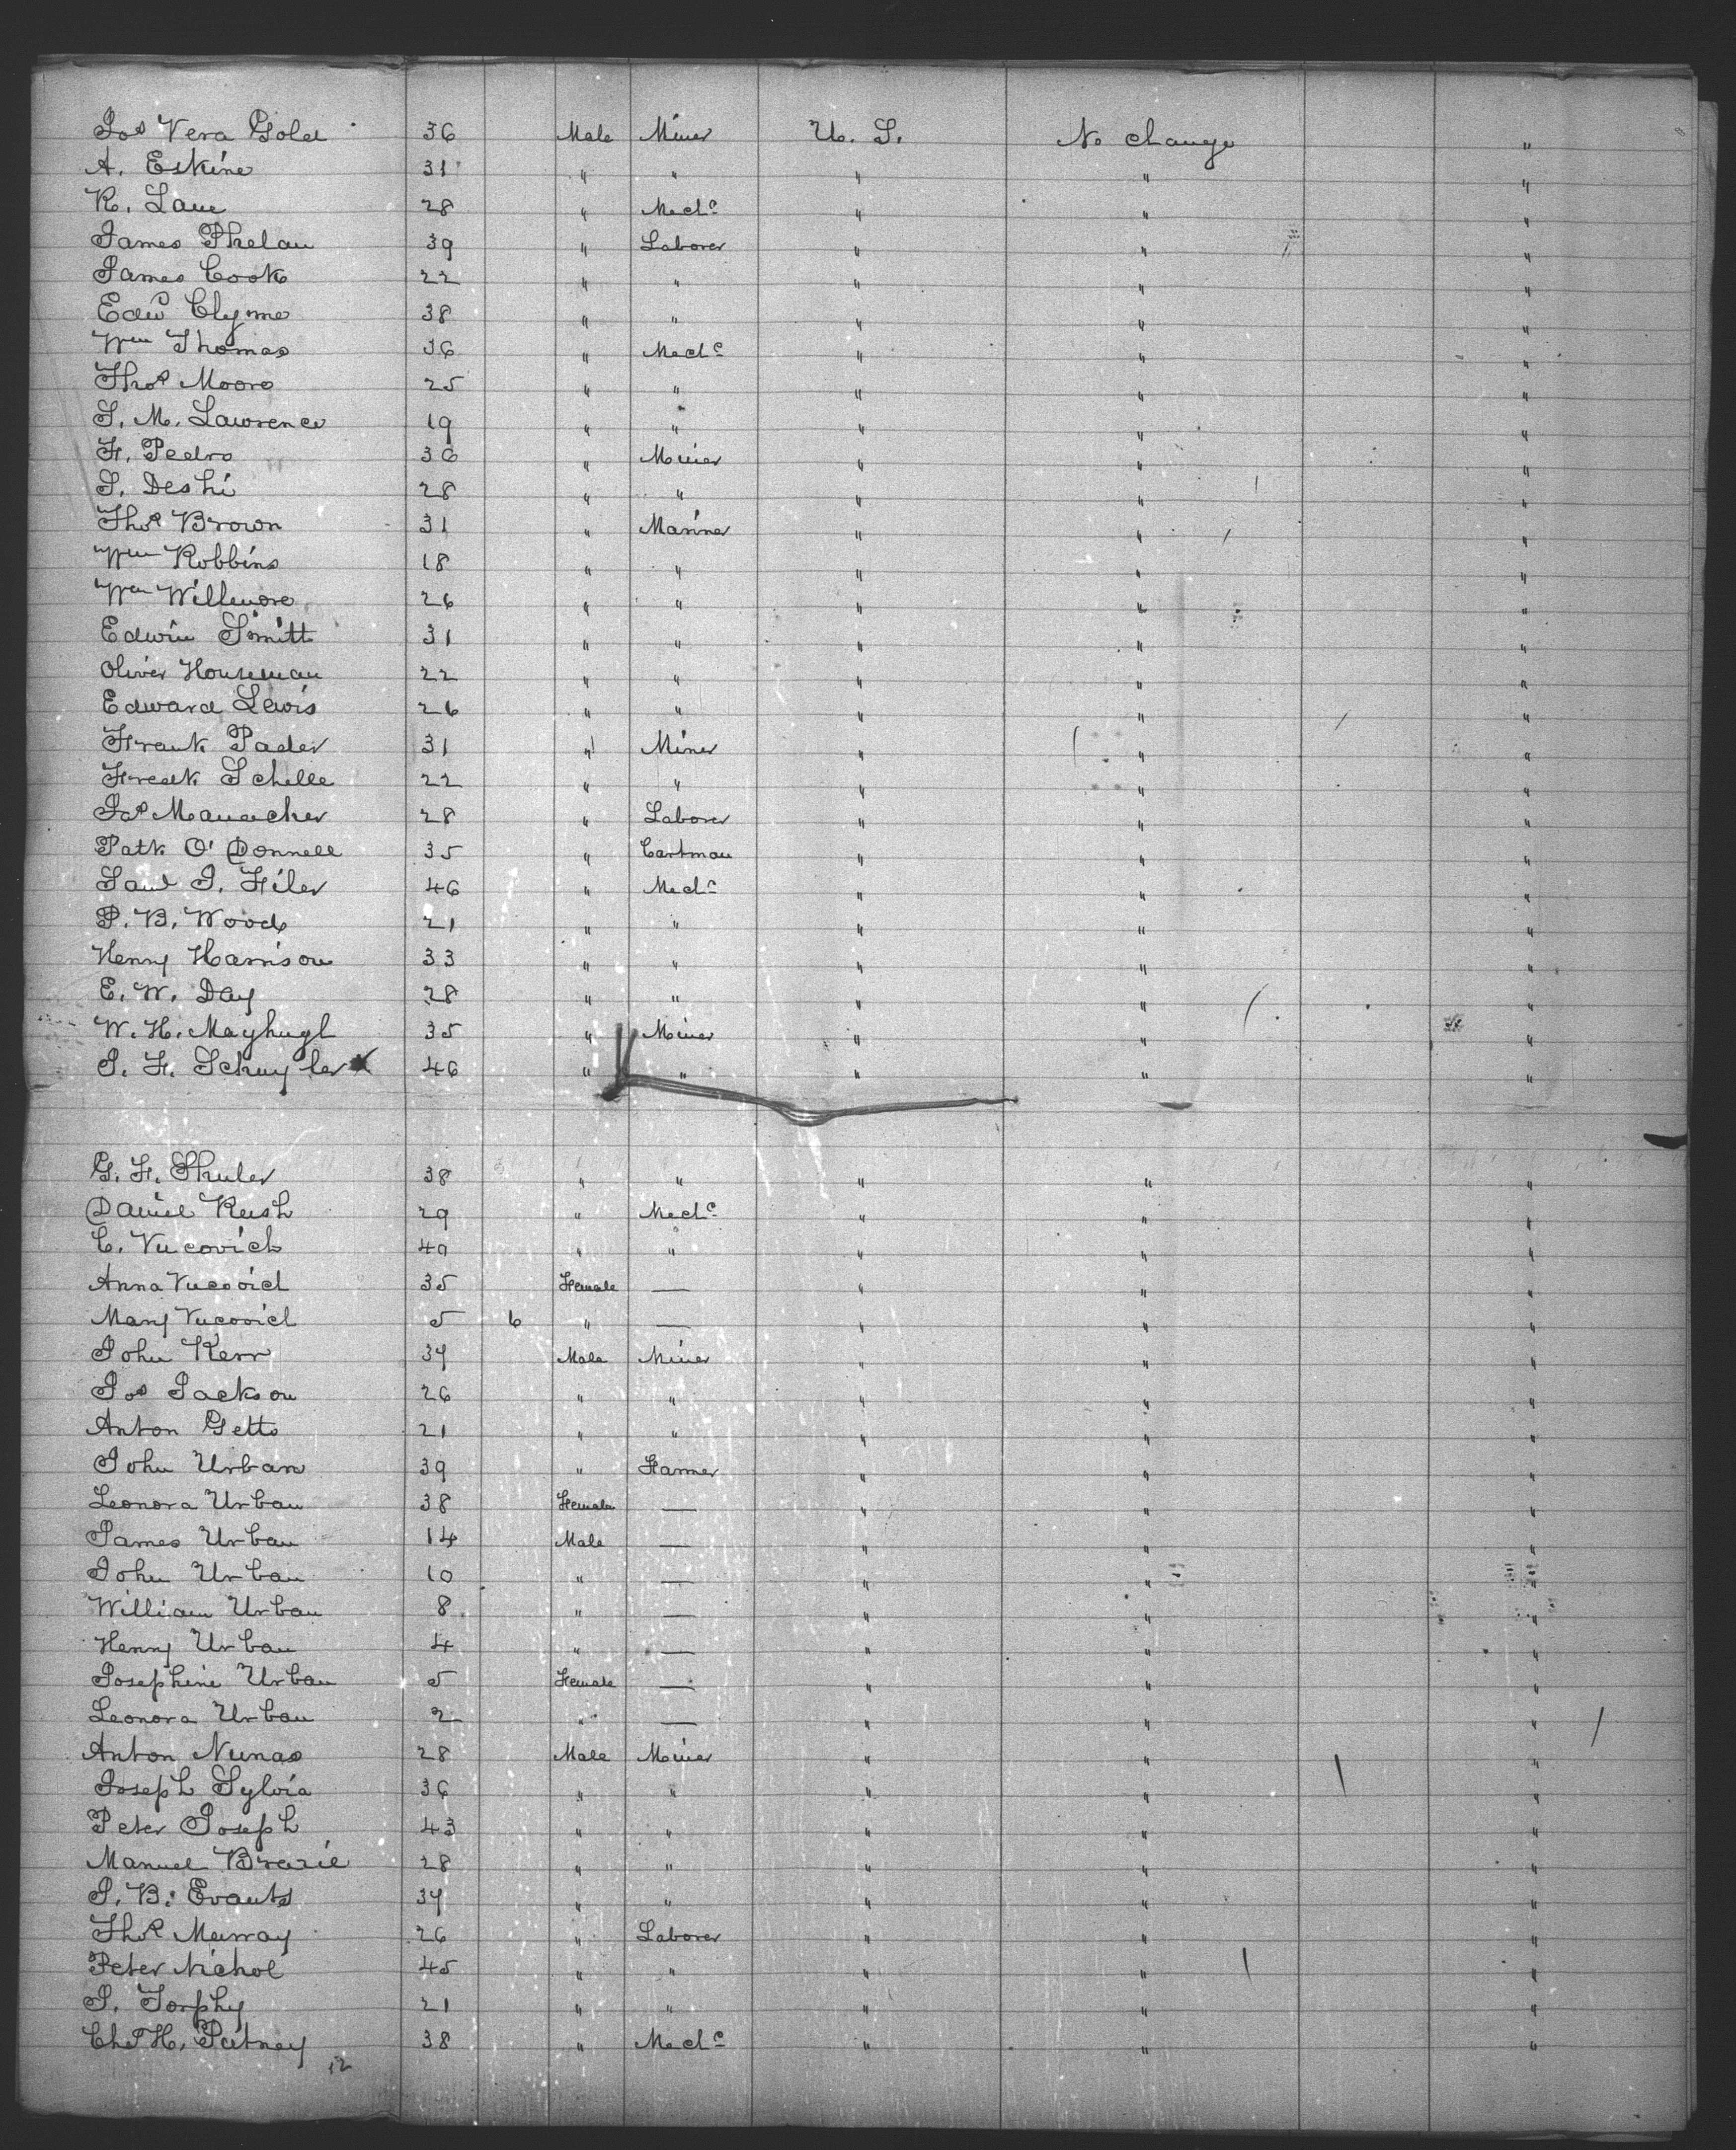 Jos Vera Gold 36 Male Miner U. S. No change "
A. Eskine 31 " " " " "
R. Lane 28 " Mech^c " " "
James Phelan 39 " Laborer " " "
James Cook 22 " " " " "
Edwd Clyme 38 " " " " "
Wm Thomas 36 " Mech^c " " "
Thos Moore 25 " " " " "
S. M. Lawrence 19 " " " " "
F. Pedro 36 " Miner " " "
S. Deshi 28 " " " " "
Thos Brown 31 " Mariner " " "
Wm Robbins 18 " " " " "
Wm Willmore 26 " " " " "
Edwin Smitt 31 " " " " "
Oliver Houseman 22 " " " " "
Edward Lewis 26 " " " " "
Frank Pader 31 " Miner " " "
Fredk Schelle 22 " " " " "
Jas Manacher 28 " Laborer " " "
Patk O'Donnell 35 " Cartman " " "
Saml J. Filer 46 " Mech^c " " "
P. B. Woods 21 " " " " "
Henry Harrison 33 " " " " "
E. W. Day 28 " " " " "
W. H. Mayhugh 35 " Miner " " "
J. F. Schuyler x 46 " " " " "
G. F. Shuler 38 " " " " "
Daniel Rush 29 " Mech^c " " "
C. Vucovich 40 " " " " "
Anna Vucovich 35 Female — " " "
Mary Vucovich 5 6 " — " " "
John Kerr 34 Male Miner " " "
Jos Jackson 26 " " " " "
Anton Getto 21 " " " " "
John Urban 39 " Farmer " " "
Leonora Urban 38 Female — " " "
James Urban 14 Male — " " "
John Urban 10 " — " " "
William Urban 8 " — " " "
Henry Urban 4 " — " " "
Josephine Urban 5 Female — " " "
Leonora Urban 2 " — " " "
Anton Nunas 28 Male Miner " " "
Joseph Sylvia 36 " " " " "
Peter Joseph 43 " " " " "
Manuel Brazil 28 " " " " "
J. B. Evants 34 " " " " "
Thos Murray 26 " Laborer " " "
Peter Nichol 45 " " " " "
J. Torphy 21 " " " " "
Chs H. Putney 38 " Mech^c " " "
12